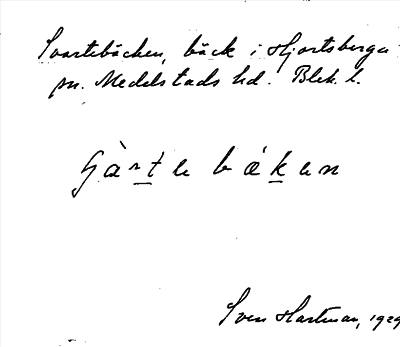 Svartebäcken, bäck i Hjortsberga
sn. Medelstads hd. Blek. l.
bäken
Sven Hartman, 1929